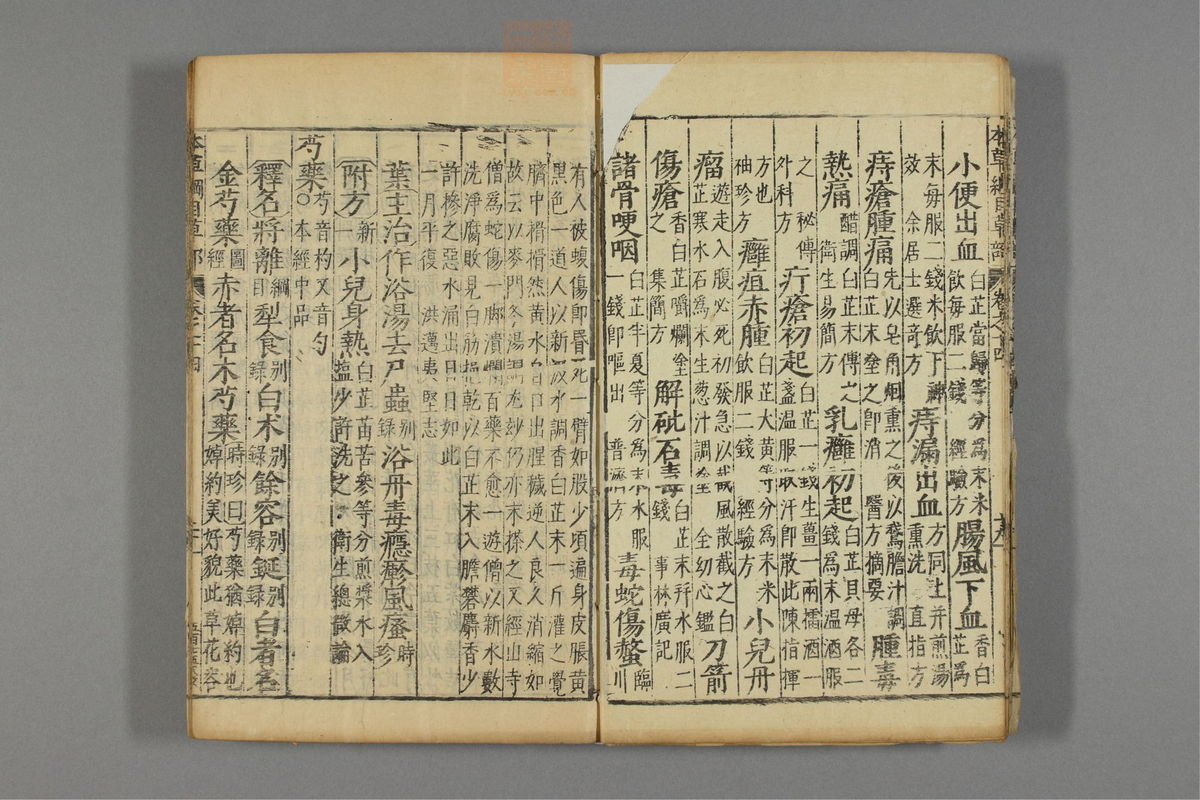 小便出血白芷當歸等分爲末米飲每服二錢 經驗方腸風下血香白芷爲
末每服二錢米飲下神效 余居士選奇方痔漏出血方同上并煎湯熏洗 直指方
痔瘡腫痛先以皂角烟熏之後以鵞膽汁調白芷末塗之卽消 醫方摘要腫毒
熱痛醋調白芷末傅之衛生易簡方乳癰初起白芷貝母各二錢爲末温酒服
之 秘傳外科方疔瘡初起白芷一錢生薑一兩擂酒一盞温服取汗卽散此陳指揮
方也袖珍方癰疽赤腫白芷大黄等分爲末米飲服二錢 經驗方小兒丹
瘤遊走入腹必死初發急以截風散截之白芷寒水石爲末生葱汁調塗 全幼心鑑刀箭
傷瘡香白芷嚼爛塗之 集簡方解砒石毒白芷末井水服二錢 事林廣記
諸骨哽咽白芷半夏等分爲末水服一錢卽嘔出 普濟方毒蛇傷螫臨川
有人被蝮傷卽昏死一臂如股少頃遍身皮脹黄
黑色一道人以新汲水調香白芷末一斤灌之覺
臍中㨰㨰然黄水自口出腥穢逆人良久消縮如
故云以麥門冬湯調尤妙仍以末搽之又經山寺
僧爲蛇傷一脚潰爛百藥不愈一遊僧以新水數
洗淨腐敗見白筋挹乾以白芷末入膽礬麝香少
許摻之惡水涌出日日如此一月平復 洪邁夷堅志
葉主治作浴湯去尸蟲别錄浴丹毒癮㾦風瘙時珍
附方新一小兒身熱白芷苗苦參等分煎漿水入塩少許洗之 衛生總微論
芍藥芍音杓又音勺○本經中品
釋名將離綱目犁食别錄白朮别錄餘容别錄鋋别錄白者名
金芍藥圖經赤者名木芍藥時珍曰芍藥猶婥約也婥約美好貌此草花容
本草綱目草部